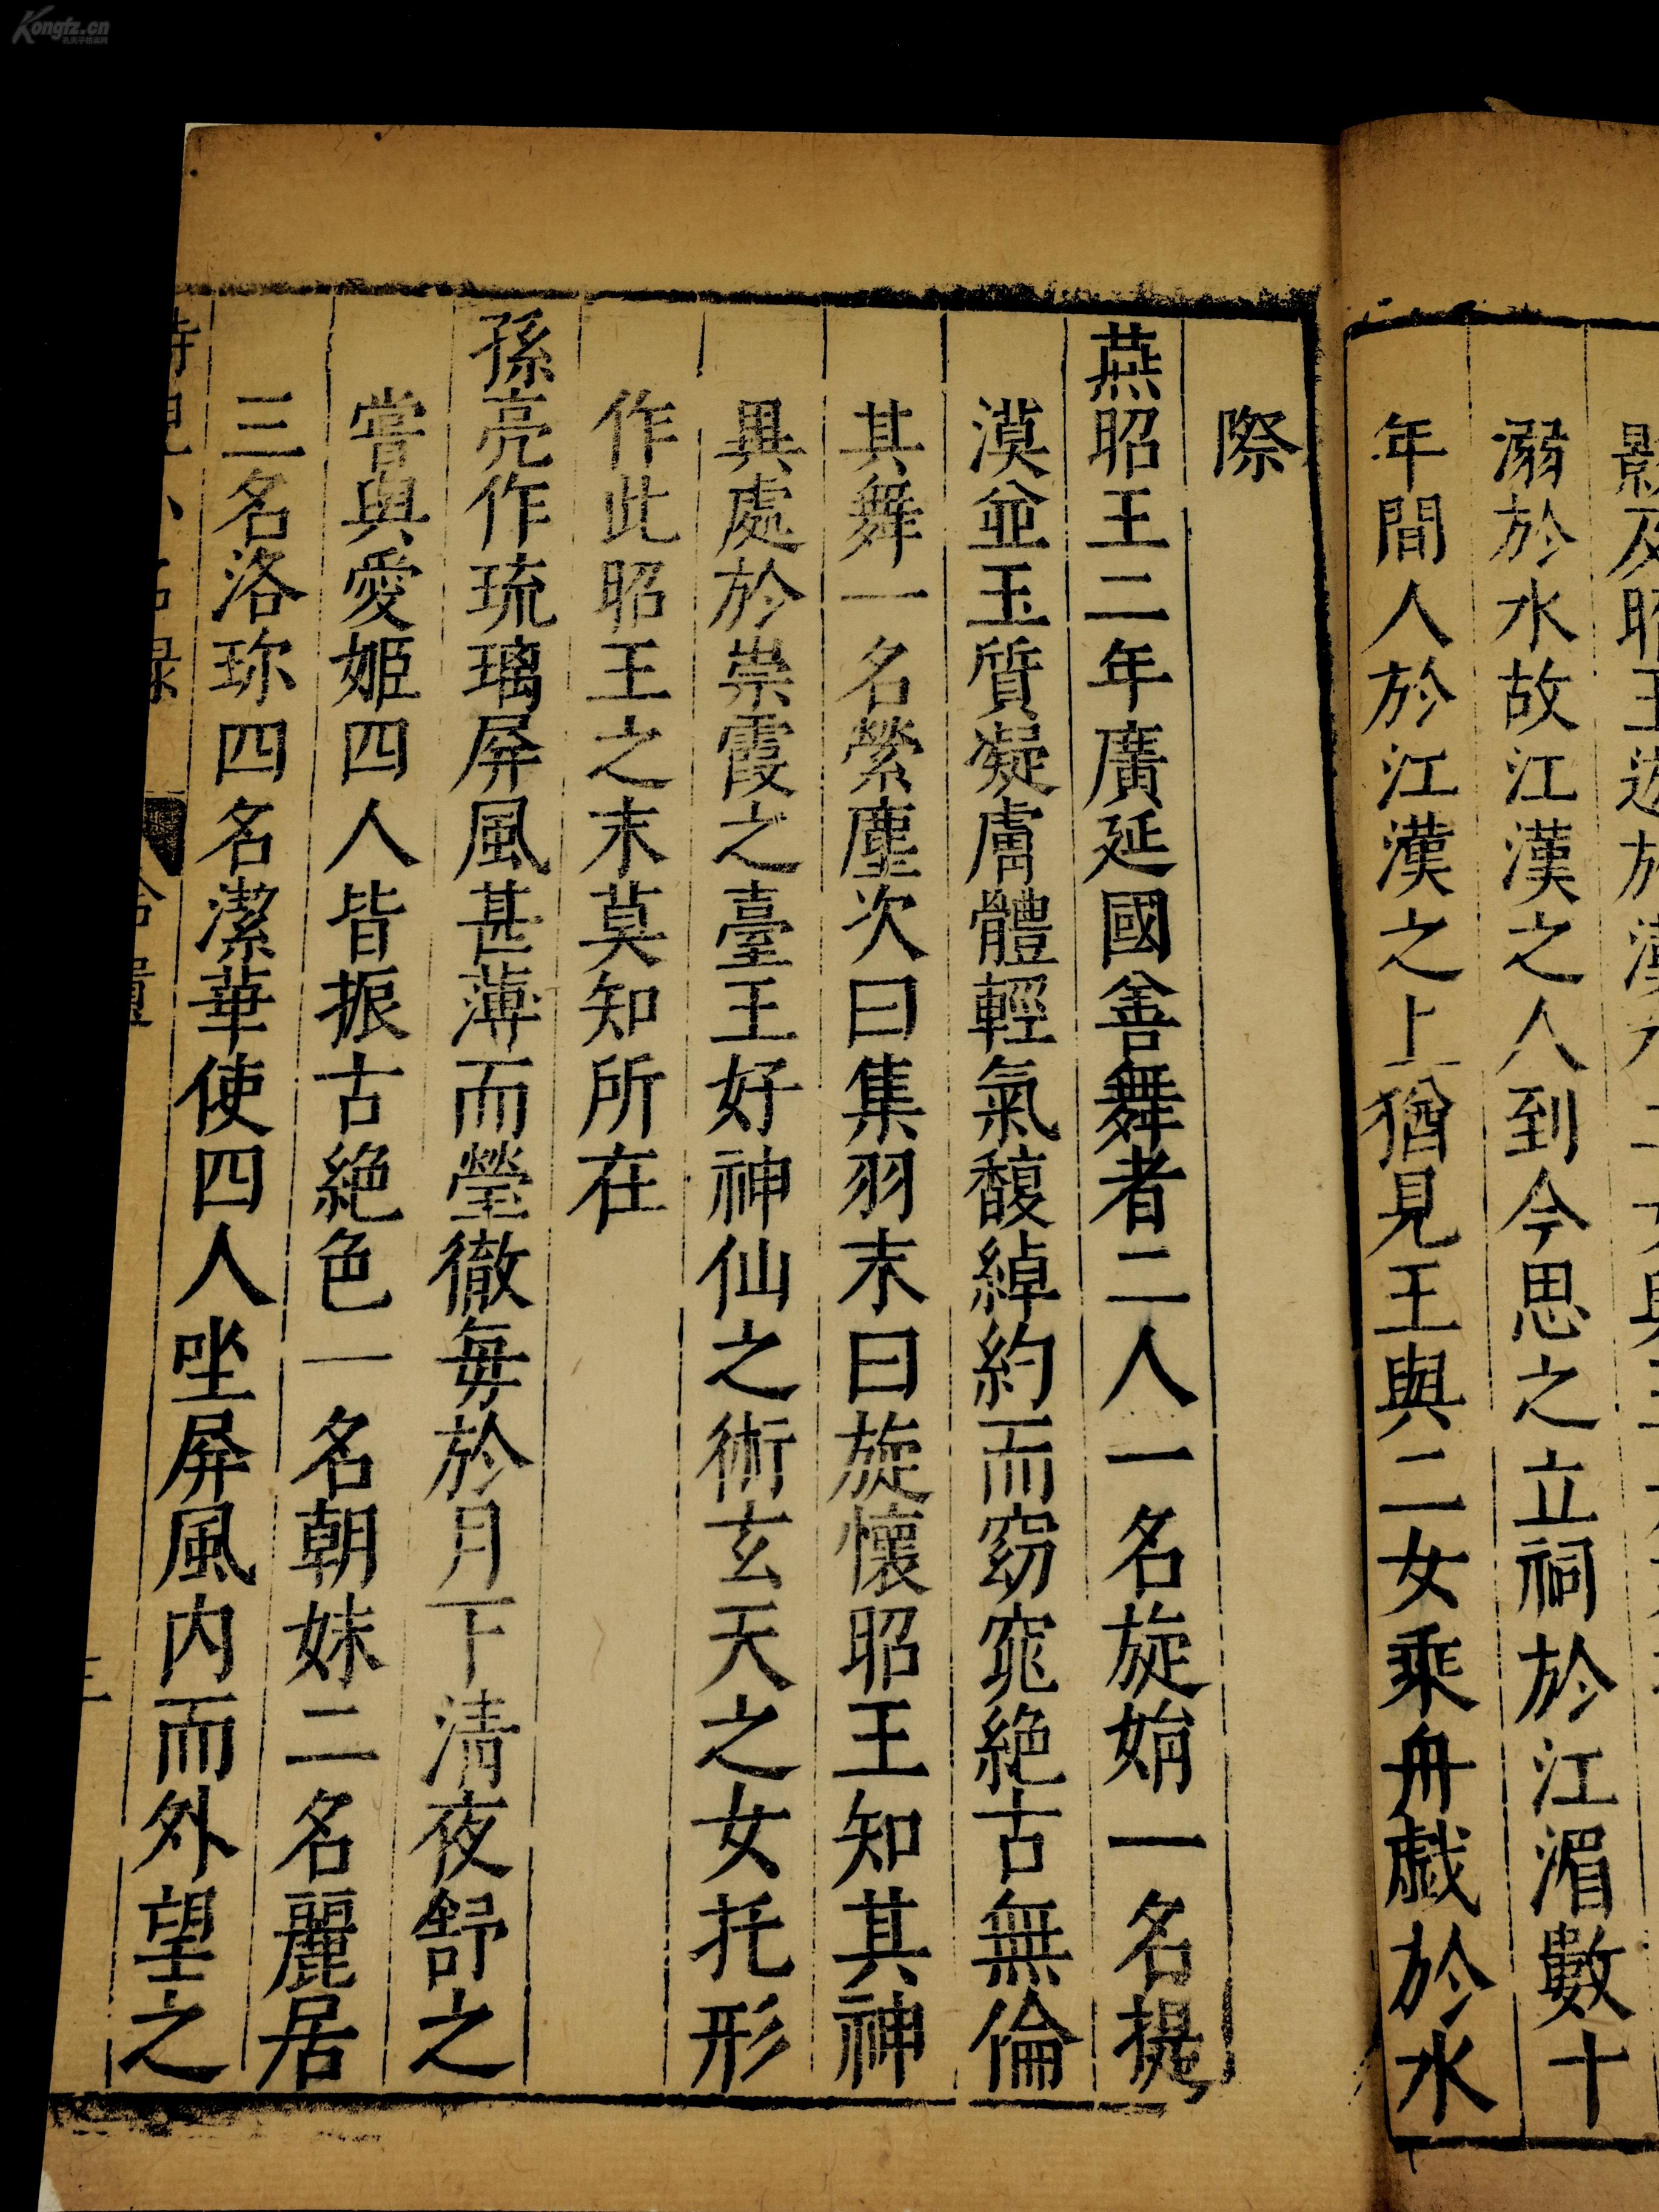 溺於水故江漢之人到今思之立祠於江湄數十
年間人於江漢之上猶見王與二女乘舟戲於水
際
燕昭王二年廣延國善舞者二人一名旋娟一名提
漠並玉質凝膚體輕氣馥綽約而窈窕絕古無倫
其舞一名縈塵次曰集羽末曰旋懷昭王知其神
異處於崇霞之臺王好神仙之術玄天之女托形
作此昭王之末莫知所在
孫亮作琉璃屏風甚薄而瑩徹每於月下清夜舒之
嘗與愛姬四人皆振古絕色一名朝姝二名麗居
三名洛珍四名潔華使四人坐屏風内而外望之
Kongfz.cn